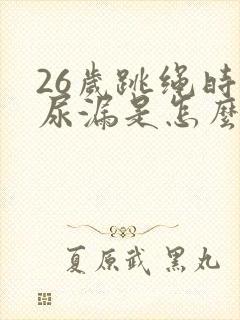 26歲跳绳時
尿漏是怎麼
夏原武 黑丸